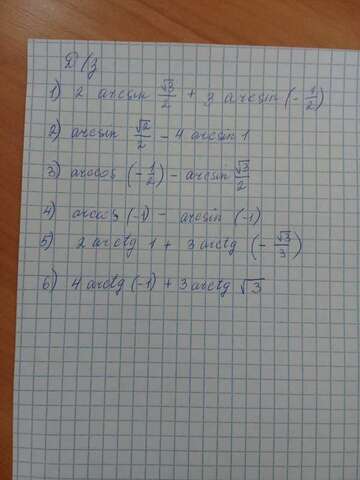 Д/з
1) 2 arcsin √3/2 + 3 arcsin (-1/2)
2) arcsin √2/2 - 4 arcsin 1
3) arccos (-1/2) - arcsin √3/2
4) arccos (-1) - arcsin (-1)
5) 2 arctg 1 + 3 arctg (-√3/3)
6) 4 arctg (-1) + 3 arctg √3